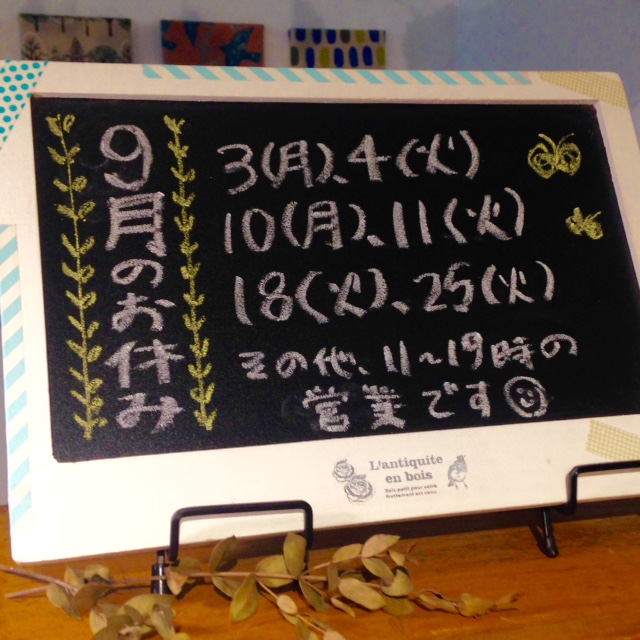 9月のお休み
3(月)、4(火)
10(月)、11(火)
18(火)、25(火)
その他、11〜19時の
営業です
L'antiquite
en bois